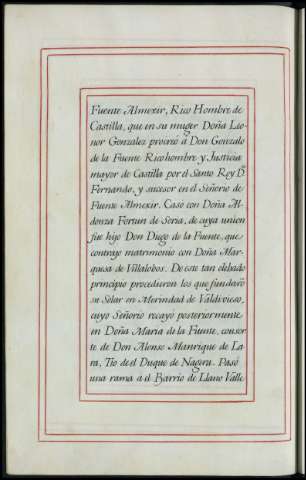 Fuente Almexir, Rico Hombre de
Castilla, que en su muger Doña Leo
nor Gonzalez procreó á Don Gonzalo
de la Fuente Ricohombre y Justicia
mayor de Castilla por el Santo Rey Dⁿ
Fernando, y sucesor en el Señorio de
Fuente Almexir. Casó con Doña Al-
donza Fortun de Soria, de cuya union
fue hijo Don Diego de la Fuente, que
contrajo matrimonio con Doña Mar-
quesa de Villalobos. De este tan elebado
principio procedieron los que fundarō
su Solar en Merindad de Valdivieso,
cuyo Señorio recayó posteriormente
en Doña Maria de la Fuente, consor
te de Don Alonso Manrique de La
ra, Tio de el Duque de Nagera. Pasó
una rama á el Barrio de Llano Valle